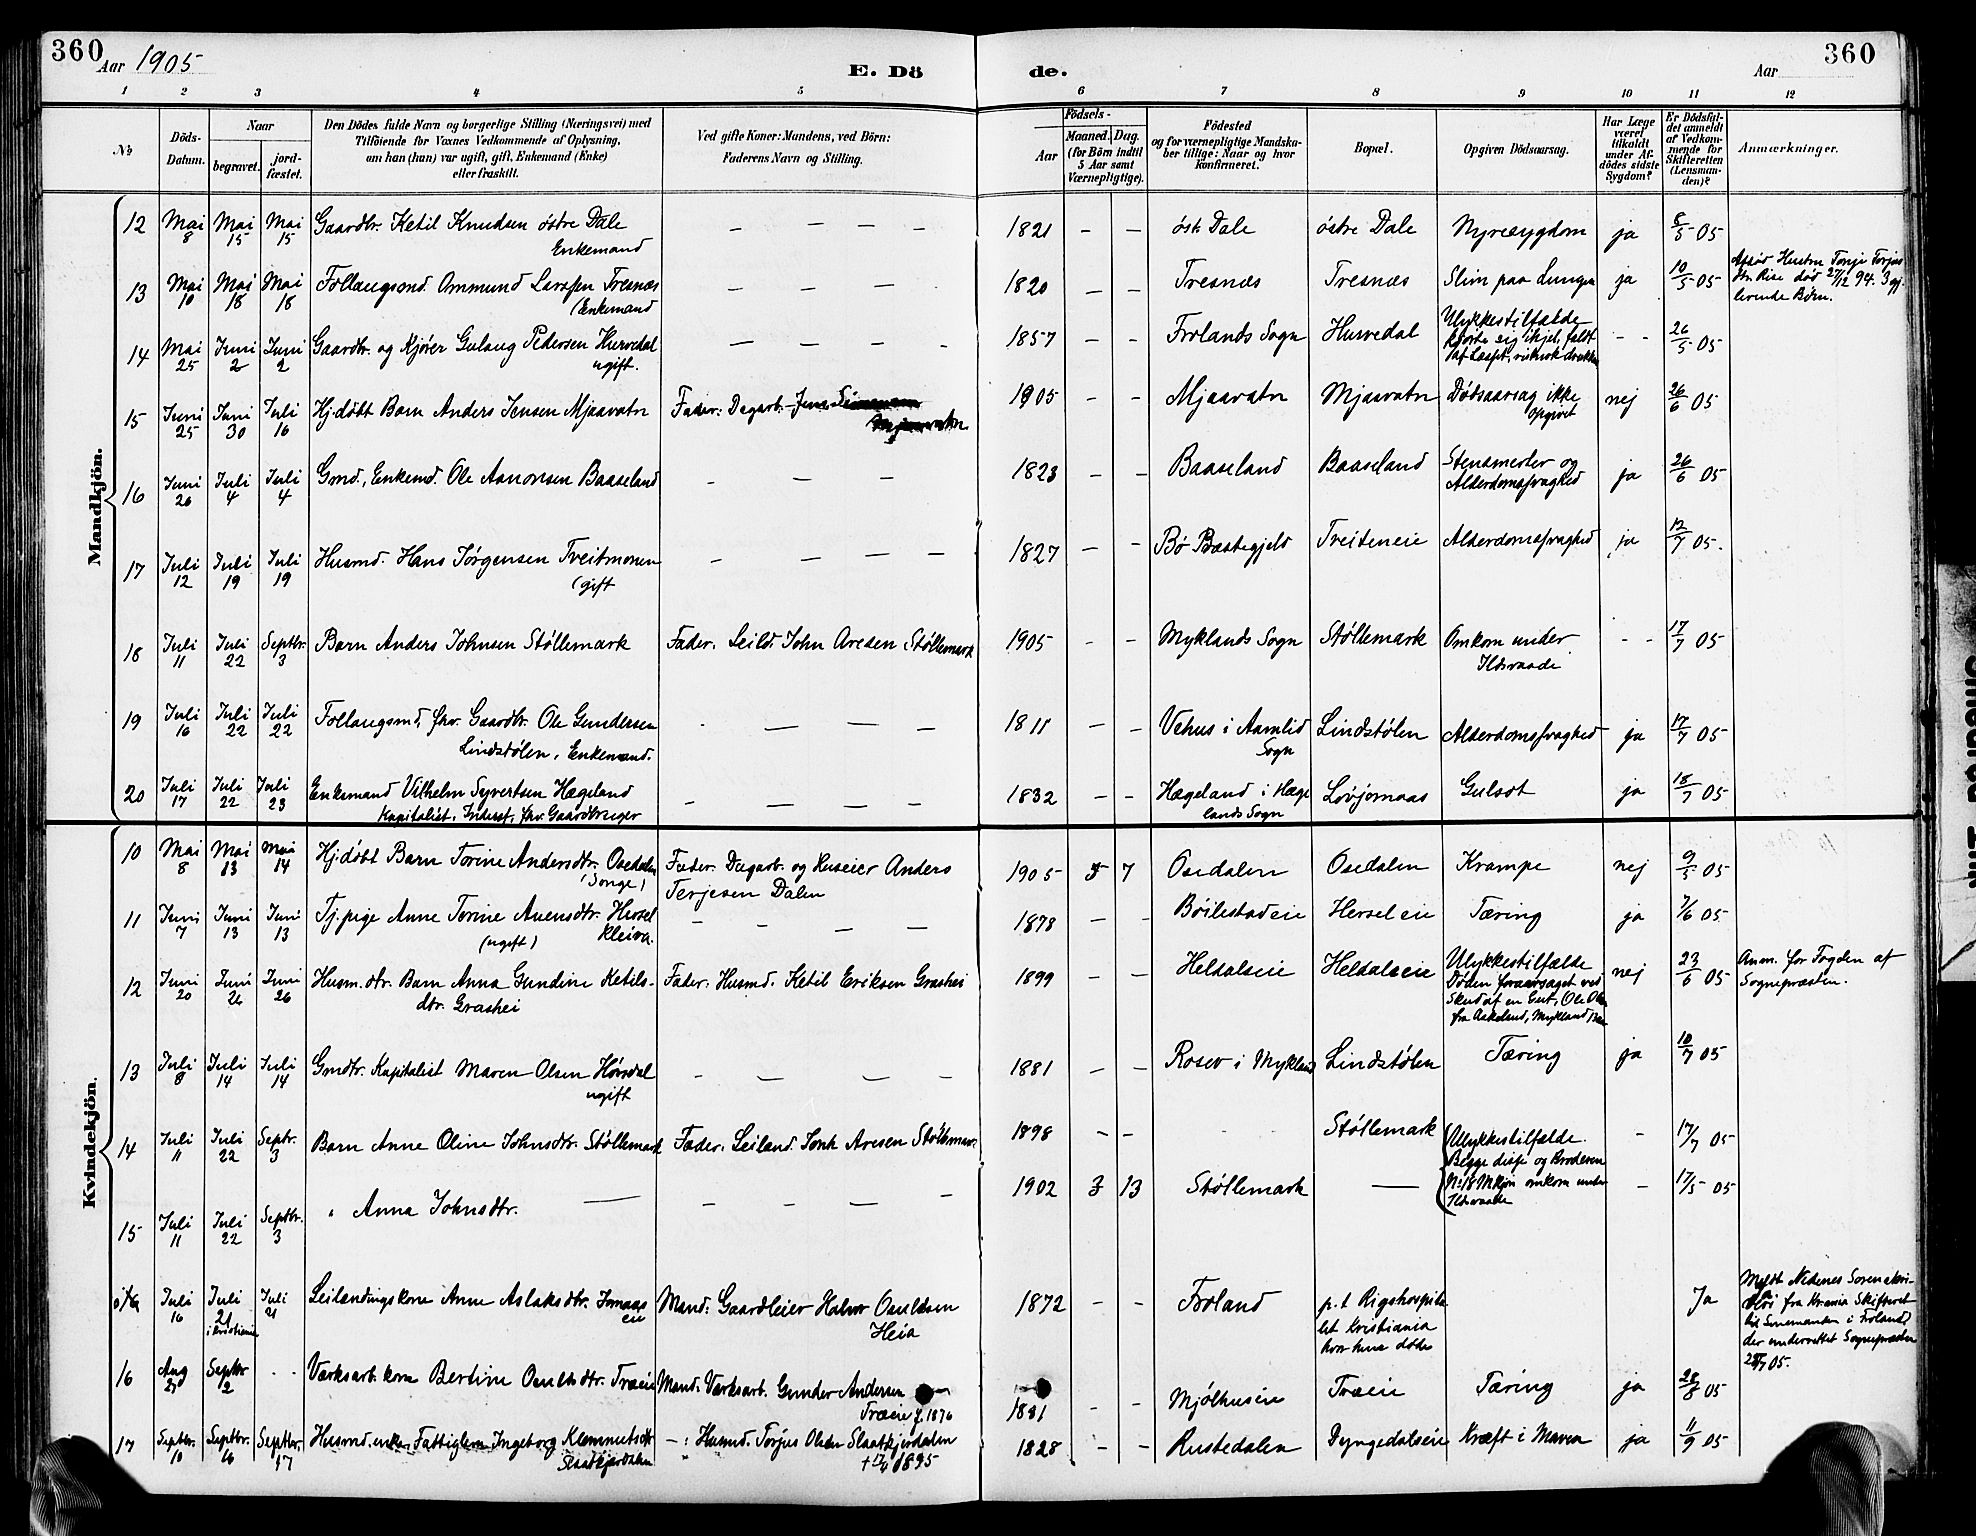 360 Aar 1905
E. Dö
de.
Aar
360
1 2 3 4 5 6 7 8 9 10 11 12
No
Döds-Datum.
Naar
begravet.
jord-fæstet.
Den Dödes fulde Navn og borgerlige Stilling (Næringsvei) med
Tilföiende for Voxnes Vedkommende af Oplysning,
om han (hun) var ugift, gift, Enkemand (Enke)
eller fraskilt.
Ved gifte Koner: Mandens, ved Börn:
Faderens Navn og Stilling.
Födsels-
Aar
Maaned.
Dag.
(for Börn indtil
5 Aar samt
Værnepligtige).
Födested
og for værnepligtige Mandska-
ber tillige: Naar og hvor
konfirmeret.
Bopæl.
Opgiven Dödsaarsag.
Har Læge
været
tilkaldt
under Af-
dödes sidste
Sygdom?
Er Dödsfal-
det anmeldt
af Vedkom-
mende for
Skifteretten
(Lensman-
den)?
Anmærkninger.
Mandkjön.
12 Mai 8 Mai 15 Mai 15 Gaardbr. Ketil Knudsen østre Dale — — — — 1821 — — øst. Dale østre Dale Nyresygdom ja 8/5 05
Enkemand
13 Mai 10 Mai 18 Mai 18 Follaugsmd. Ommund Larssen Tresnæs — — — 1820 — — Tresnæs Tresnæs Slim paa Lungen ja 10/5 05 Afsød Hustru Tonje Torjus
(Enkemand
dtr. Rise død 27/12 94. 3 gj.
levende Børn.
14 Mai 25 Juni 2 Juni 2 Gaardbr. og Kjører Gulaug Pedersen Hurvedal — — — - 1857 — — Frolands Sogn Hurvedal Ulykkestilfælde - - 26/5 05
ugift.
kjørte sig ihjel, faldt
af Læsset,
15 Juni 25 Juni 30 Juli 16 Hj.døbt Barn Anders Jensen Mjaavatn Fader: Dagarb. Jens 1905 — — Mjaavatn Mjaavatn Dødsaarsag ikke nej 26/6 05
Mjaavatn
opgivet
16 Juni 26 Juli 4 Juli 4 Gmd., Enkemd. Ole Aanonsen Baaseland - — — 1823 — — Baaseland Baaseland Stensmerter og ja 26/6 05
Alderdomssvaghed
17 Juli 12 Juli 19 Juli 19 Husmd. Hans Jørgensen Tveitmonen — — — — 1827 — — Bø Præstegjeld Treiteneie Alderdomssvaghed ja 12/7 05.
(gift
18 Juli 11 Juli 22 Septbr. 3 Barn Anders Johnsen Støllemark Fader: Leild. John Aresen Støllemark 1905 - - Myklands Sogn Støllemark Omkom under - - 17/7 05
Ildsvaade
19 Juli 16 Juli 22 Juli 22 Follaugsmd, fhv. Gaardbr. Ole Gundersen - — — — 1811 — — Vehus i Aamlid Lindstølen Alderdomssvaghed ja 17/7 05
Lindstølen, Enkemand.
Sogn
20 Juli 17 Juli 22 Juli 23 Enkemand Vilhelm Syvertsen Hægeland — — — — 1832 — — Hægeland i Hæge Lovjomaas Gulsot ja 18/7 05
Kapitalist, Inderst, fhv. Gaardbruger
lands Sogn
Kvindekjön.
10 Mai 8 Mai 13 Mai 14 Hj.døbt Barn Torine Andersdtr. Osedalen Fader: Dagarb. og Huseier Anders 1905 5 7 Osedalen Osedalen Krampe nej 9/5 05
(Songe)
Terjesen Dalen
11 Juni 7 Juni 13 Juni 13 Tj.pige Anne Torine Auensdtr. Hersel — — — — 1878 — — Bøilestadeie Herseleie Tæring ja 7/6 05
(ugift) kleiva.
12 Juni 20 Juni 26 Juni 26 Husm.dtr. Barn Anna Gundine Ketils- Fader: Husmd. Ketil Eriksen Grashei 1899 — — Heldalseie Heldalseie Ulykkestilfælde nej 23/6 05 Anm. for Fogden af
dtr. Grashei
Døden foraarsaget ved
Sognepræsten.
Skud af en Gut, Ole
fra Aakeland, Mykland
13 Juli 8 Juli 14 Juli 14 Gmdtr. Kapitalist Maren Olsen Hørsdal — — — — 1881 — — Rosev i Mykland Lindstølen Tæring ja 10/7 05
ugift
14 Juli 11 Juli 22 Septr. 3 Barn Anne Oline Johnsdtr. Støllemark Fader: Leiland. Aresen Støllemark 1898 — — - - Støllemark Ulykkestilfælde. - 17/7 05
Begge disse og Broderen
No 18 Mkjøn omkom under
Ildsvaade
15 Juli 11 Juli 22 Septbr. 3 " Anna Johnsdtr. — — — — — 1902 3 13 Støllemark — - 17/5 05
Juli 16 Juli 21 i Kristiania Juli 21 Leilændingskone Anne Aslaksdtr. Mand: Gaardleier Halvor Osuldsen 1872 — — Froland p.t Rigshospita Ja Meldt Nedenes Sorenskri-
eie
Heia
let Kristiania
hvor hun døde
fra Kr.ania Skifteret
til Lensmanden i Froland,
der underrettet Sognepræsten
16 Aug 27 Septbr 2 - - Værksarb. kone Bertine Osuldsdtr. Træeie Mand: Værksarb. Gunder Andersen 1881 — — Mjølhuseie Træeie Tæring ja 28/8 05
Træeie f. 1876
17 Septbr. 10 Septbr. 16 Septbr. 17 Husmd.enke Fattiglem Ingeborg Klemmetsdtr —: Husmd. Torjus Olsen Slaatkjerdalen 1828 — — Rustedalen Dyngedalseie Kræft i Maven ja 11/9 05
Slaatkjerdalen
1895